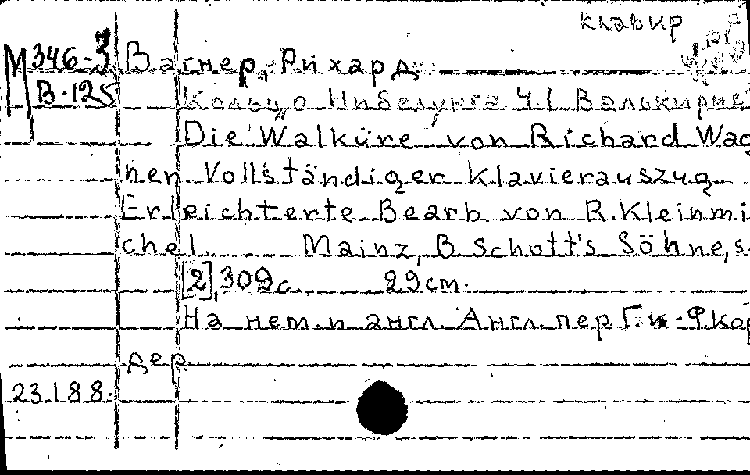 клавир
М 346-3 Вагнер, Рихард
В-125 Кольцо Нибелунга Ч1 Валькирие
Die Walküre von Richard Wag
ner Vollständiger Klavierauszug
Erleichterte Bearb von R.Kleinmi
chel. Mainz, B Schott's Söhne, s
[2], 309с 29cm.
На нем.и англ. Англ.пер Г.и Ф.Кор
дер
23.188.